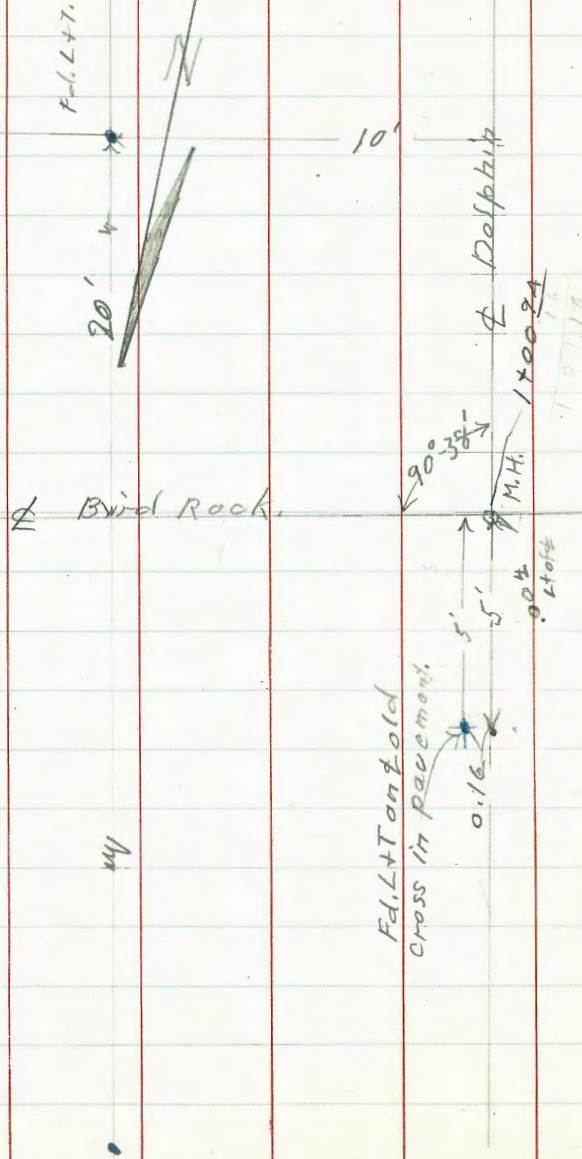 Fd. L+T.
N
10'
20'
℄ Dolphin
1+00.94
90°-38'
M.H.
℄ Bird Rock.
5'
5'
.004
Lt of ℄
Fd. L+T on ℄ old
cross in pavement.
0.16